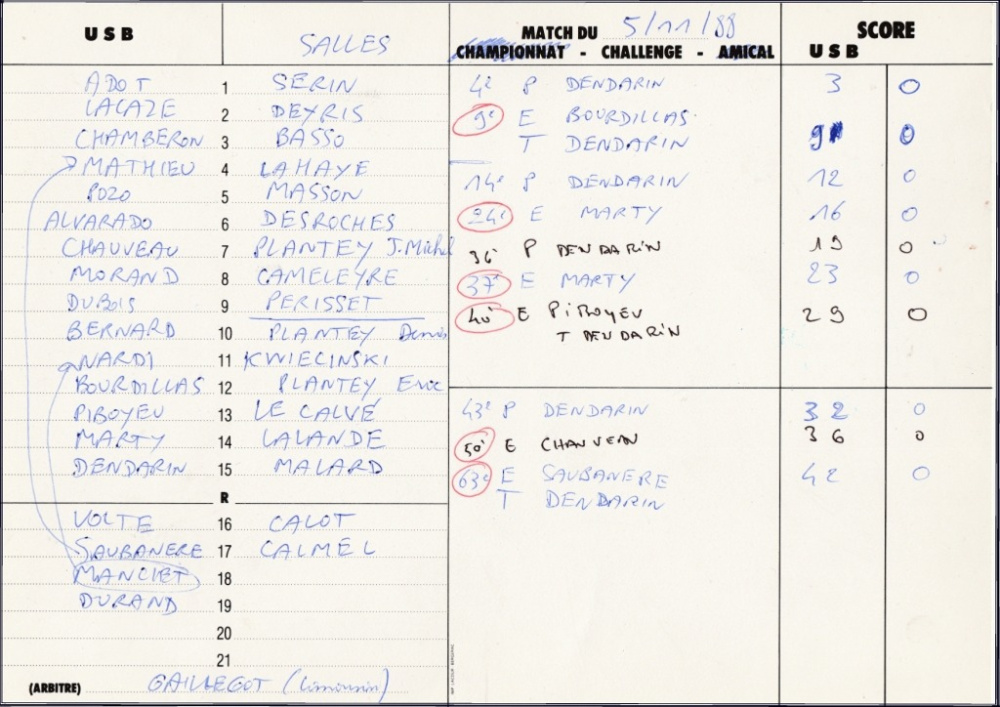 USB SALLES MATCH DU 5/11/88 SCORE
CHAMPIONNAT - CHALLENGE - AMICAL USB
ADOT 1 SERIN
LACAZE 2 DEYRIS
CHAMBERON 3 BASSO
MATHIEU 4 LAHAYE
POZO 5 MASSON
ALVARADO 6 DESROCHES
CHAUVEAU 7 PLANTEY J.Michel
MORAND 8 CAMELEYRE
DUBOIS 9 PERISSET
BERNARD 10 PLANTEY Denis
NARDI 11 KWIECINSKI
BOURDILLAS 12 PLANTEY Eric
PIBOYEU 13 LE CALVÉ
MARTY 14 LALANDE
DENDARIN 15 MALARD
R
VOLTE 16 CALOT
SAUBANERE 17 CALMEL
MANCIET 18
DURAND 19
20
21
(ARBITRE) GAILLEGOT (Limousin)
4e P DENDARIN 3 0
9e E BOURDILLAS
T DENDARIN 9 0
14e P DENDARIN 12 0
24e E MARTY 16 0
36e P DENDARIN 19 0
37e E MARTY 23 0
40e E PIBOYEU 29 0
T DENDARIN
43e P DENDARIN 32 0
50e E CHAUVEAU 36 0
63e E SAUBANERE 42 0
T DENDARIN